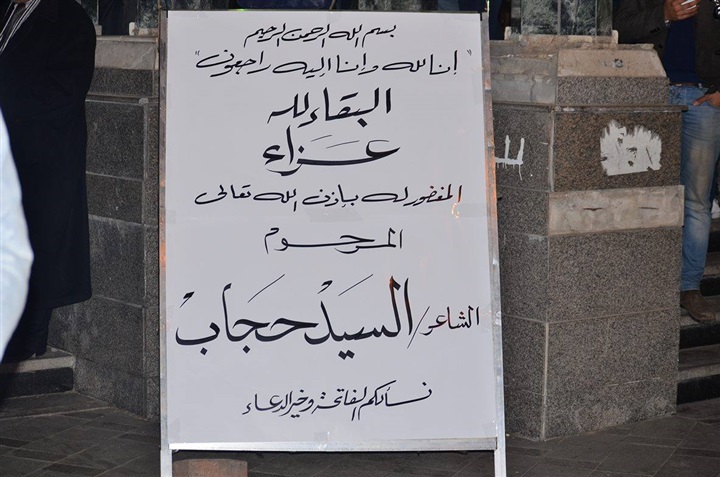 بسم الله الرحمن الرحيم
"إنا لله وإنا إليه راجعون"
البقاء لله
عزاء
المغفور له بإذن الله تعالى
المرحوم
الشاعر/ السيد حجاب
نسألكم الفاتحة وخير الدعاء